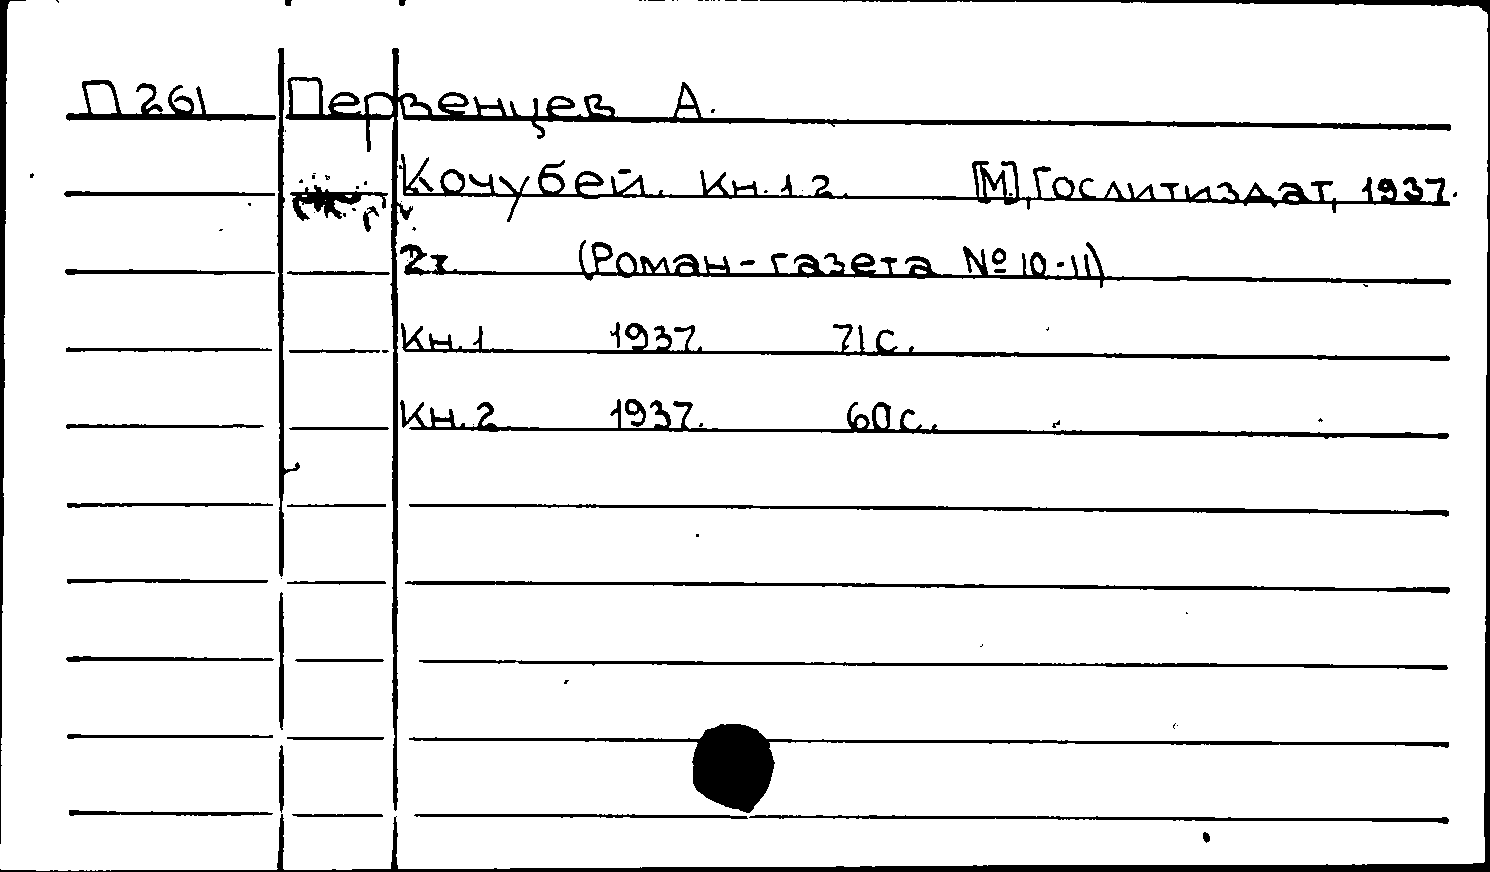 П 261 Первенцев А.
Кочубей. Кн. 1 2. [М], Гослитиздат, 1937.
2т. (Роман-газета № 10-11)
Кн. 1 1937. 71 с.
Кн. 2 1937. 60 с.